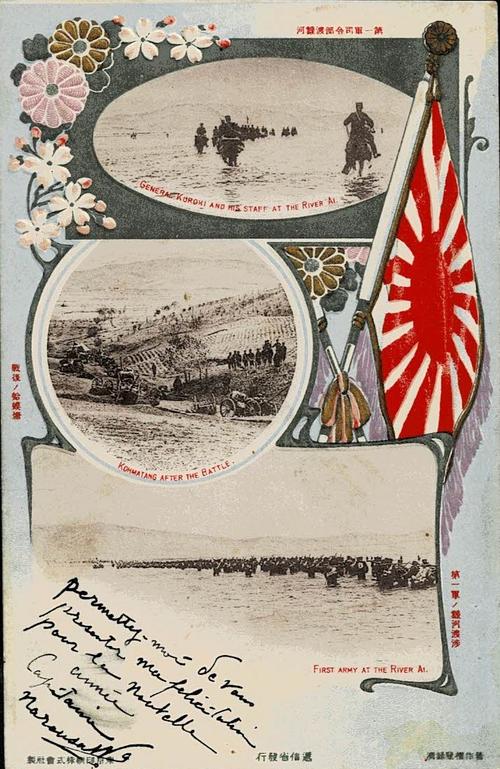 河靉渡部令司軍一第
GENERAL KUROKI AND HIS STAFF AT THE RIVER AI.
戰後ノ蛤蟆塘
KOHMATANG AFTER THE BATTLE.
第一軍ノ靉河渡渉
FIRST ARMY AT THE RIVER AI.
permettez-moi de vous
présenter
pour la nouvelle
année
Capitaine
行發省信遞
製社會式株刷印京東